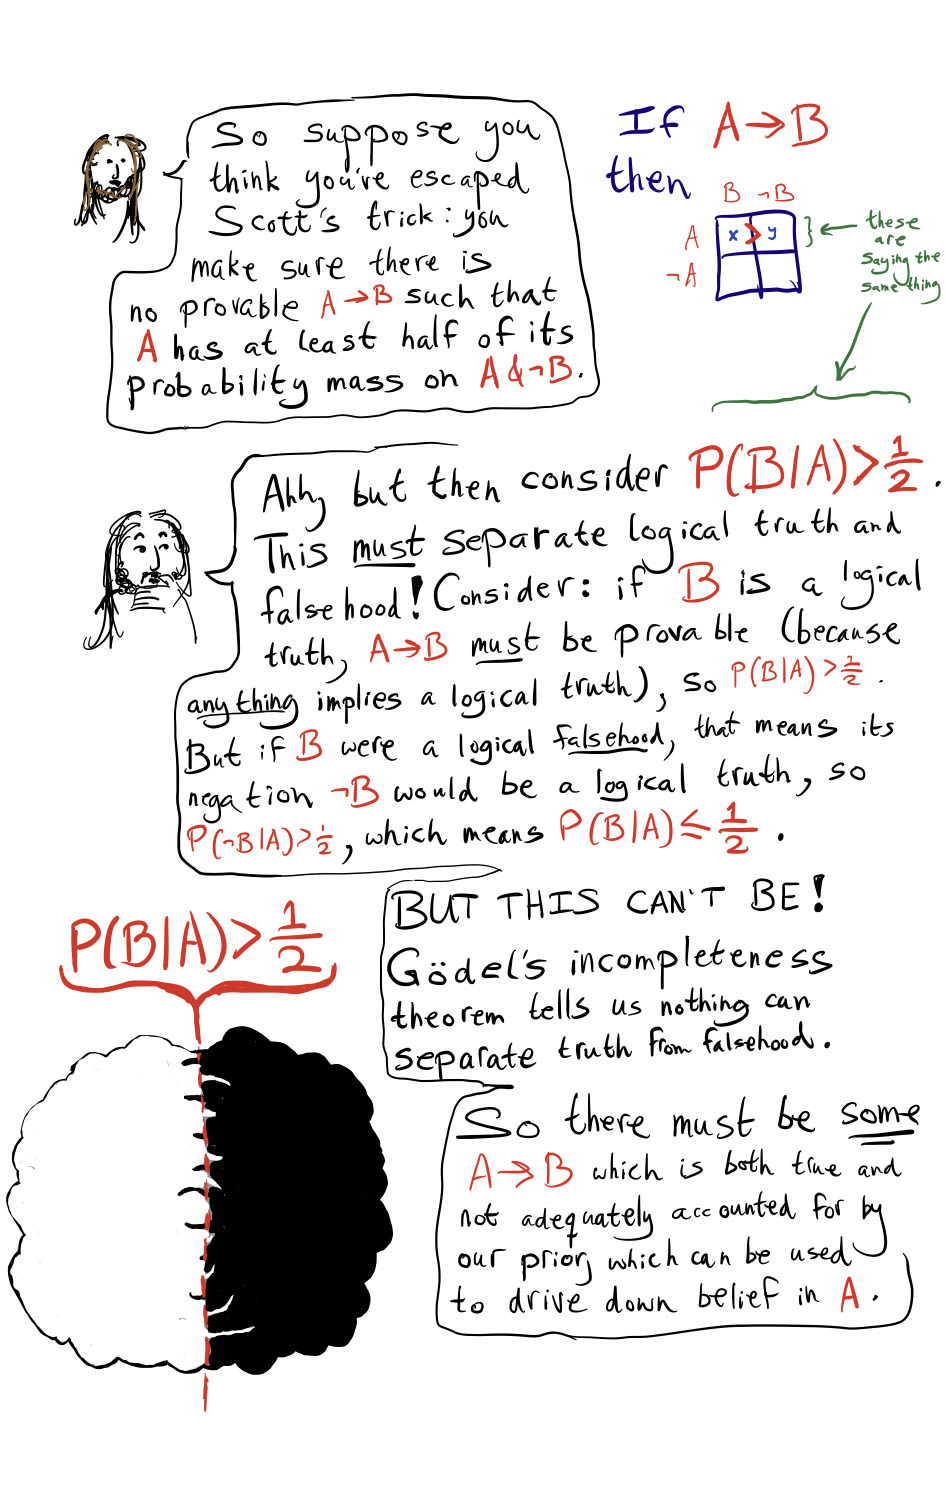 So suppose you
think you've escaped
Scott's trick: you
make sure there is
no provable A→B such that
A has at least half of its
probability mass on A&¬B.
If A→B
then
B ¬B
A x > y
¬A
these
are
saying the
same thing
Ahh, but then consider P(B|A)>1/2.
This must separate logical truth and
falsehood! Consider: if B is a logical
truth, A→B must be provable (because
anything implies a logical truth), so P(B|A)>1/2.
But if B were a logical falsehood, that means its
negation ¬B would be a logical truth, so
P(¬B|A)>1/2, which means P(B|A)≤1/2.
BUT THIS CAN'T BE!
Gödel's incompleteness
theorem tells us nothing can
separate truth from falsehood.
P(B|A)>1/2
So there must be some
A→B which is both true and
not adequately accounted for by
our prior, which can be used
to drive down belief in A.